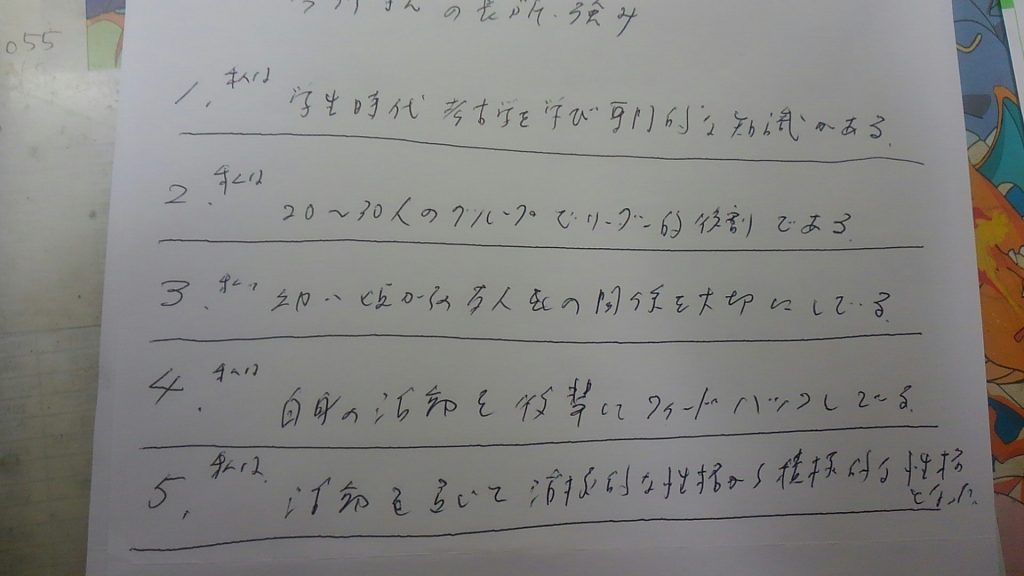 055
さんの長所・強み
1. 私は 学生時代 考古学を学び専門的な知識がある。
2. 私は 20〜30人のグループでリーダー的役割である。
3. 私は 幼い頃からの友人との関係を大切にしている。
4. 私は 自身の活動を後輩にフィードバックしている。
5. 私は 活動を通じて消極的な性格から積極的な性格
となった。